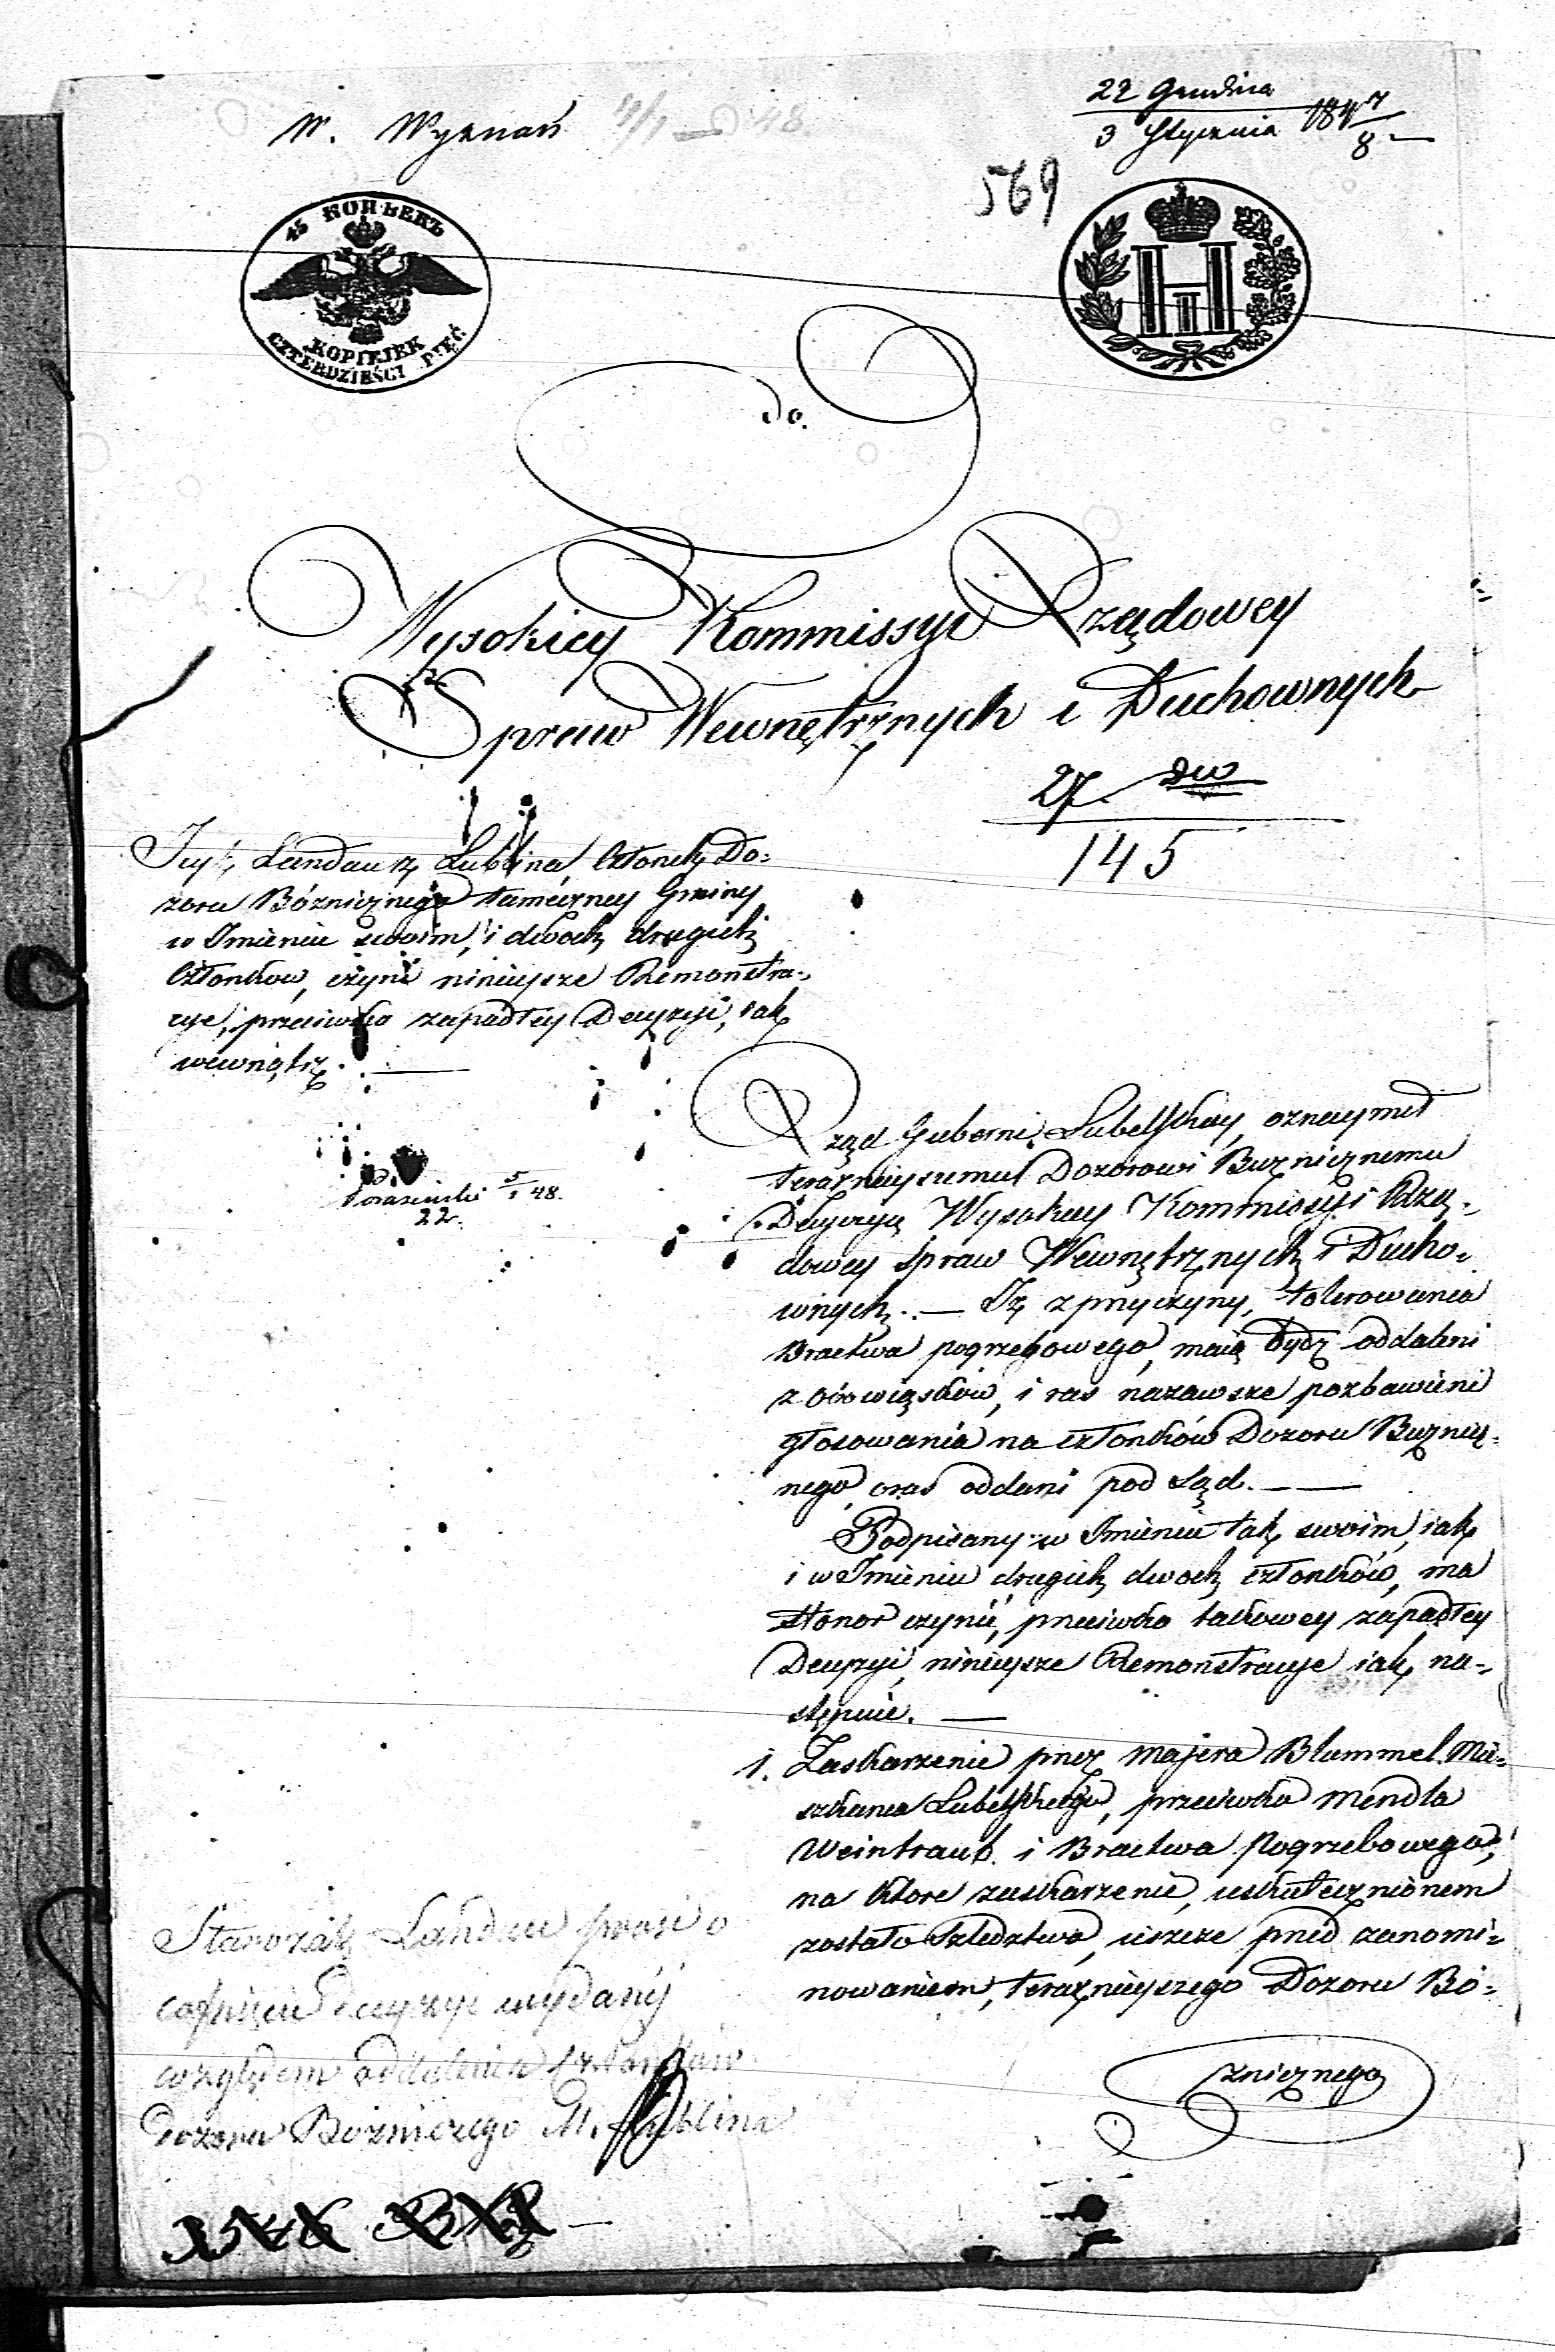 W. Wyznań
22 Grudnia
3 Stycznia 1847/8
569
45 КОПѢЕКЪ
KOPIEIEK
CZTERDZIEŚCI PIĘĆ
Do.
Wysokiey Kommissyi Rządowey
Spraw Wewnętrznych i Duchownych
27. dw
145
Landau z Lublina, Członek Do-
zoru Bóżnicznego tameyżney Gminy
w Imieniu swoim, i dwoch drugich
Członkow, czyni ninieysze Remonstra-
cye, przeciwko zapadłey Decyzyi, iak
wewnątrz. —
5/1 48.
22.
Rząd Guberni Lubelskiey, oznaymił
terazneyszemu Dozorowi Buznicznemu
Decyzyą Wysokiey Kommissyi Rzą-
dowey Spraw Wewnętrznych i Ducho-
wnych. — Iz z przyczyny, tolerowania
Bractwa pogrzebowego, maią bydz oddaleni
z obowiąsków, i ras nazawsze pozbawieni
głosowania na członków Dozoru Buznicz-
nego, oras oddani pod Sąd. —
Podpisany w Imieniu tak swoim, iak
i w Imieniu drugich dwoch członków, ma
Honor czynić, przeciwko takowey zapadłey
Decyzyi, ninieysze Remonstracye iak na-
stępuie. —
1. Zaskarzenie przez Majera Blummel Mie-
szkanca Lubelskiego, przeciwko Mendla
Weintraub. i Bractwa Pogrzebowego,
na ktore zaskarzenie, uskutecznionem
zostało Szledztwo, ieszcze przed zanomi-
nowaniem, terazneyszego Dozoru Bó-
znicznego
Starozak. Landau prosi o
cofnięcie decyzyi wydanéj
względem oddalenia Członków
Dozoru Bóżniczego M. Lublina